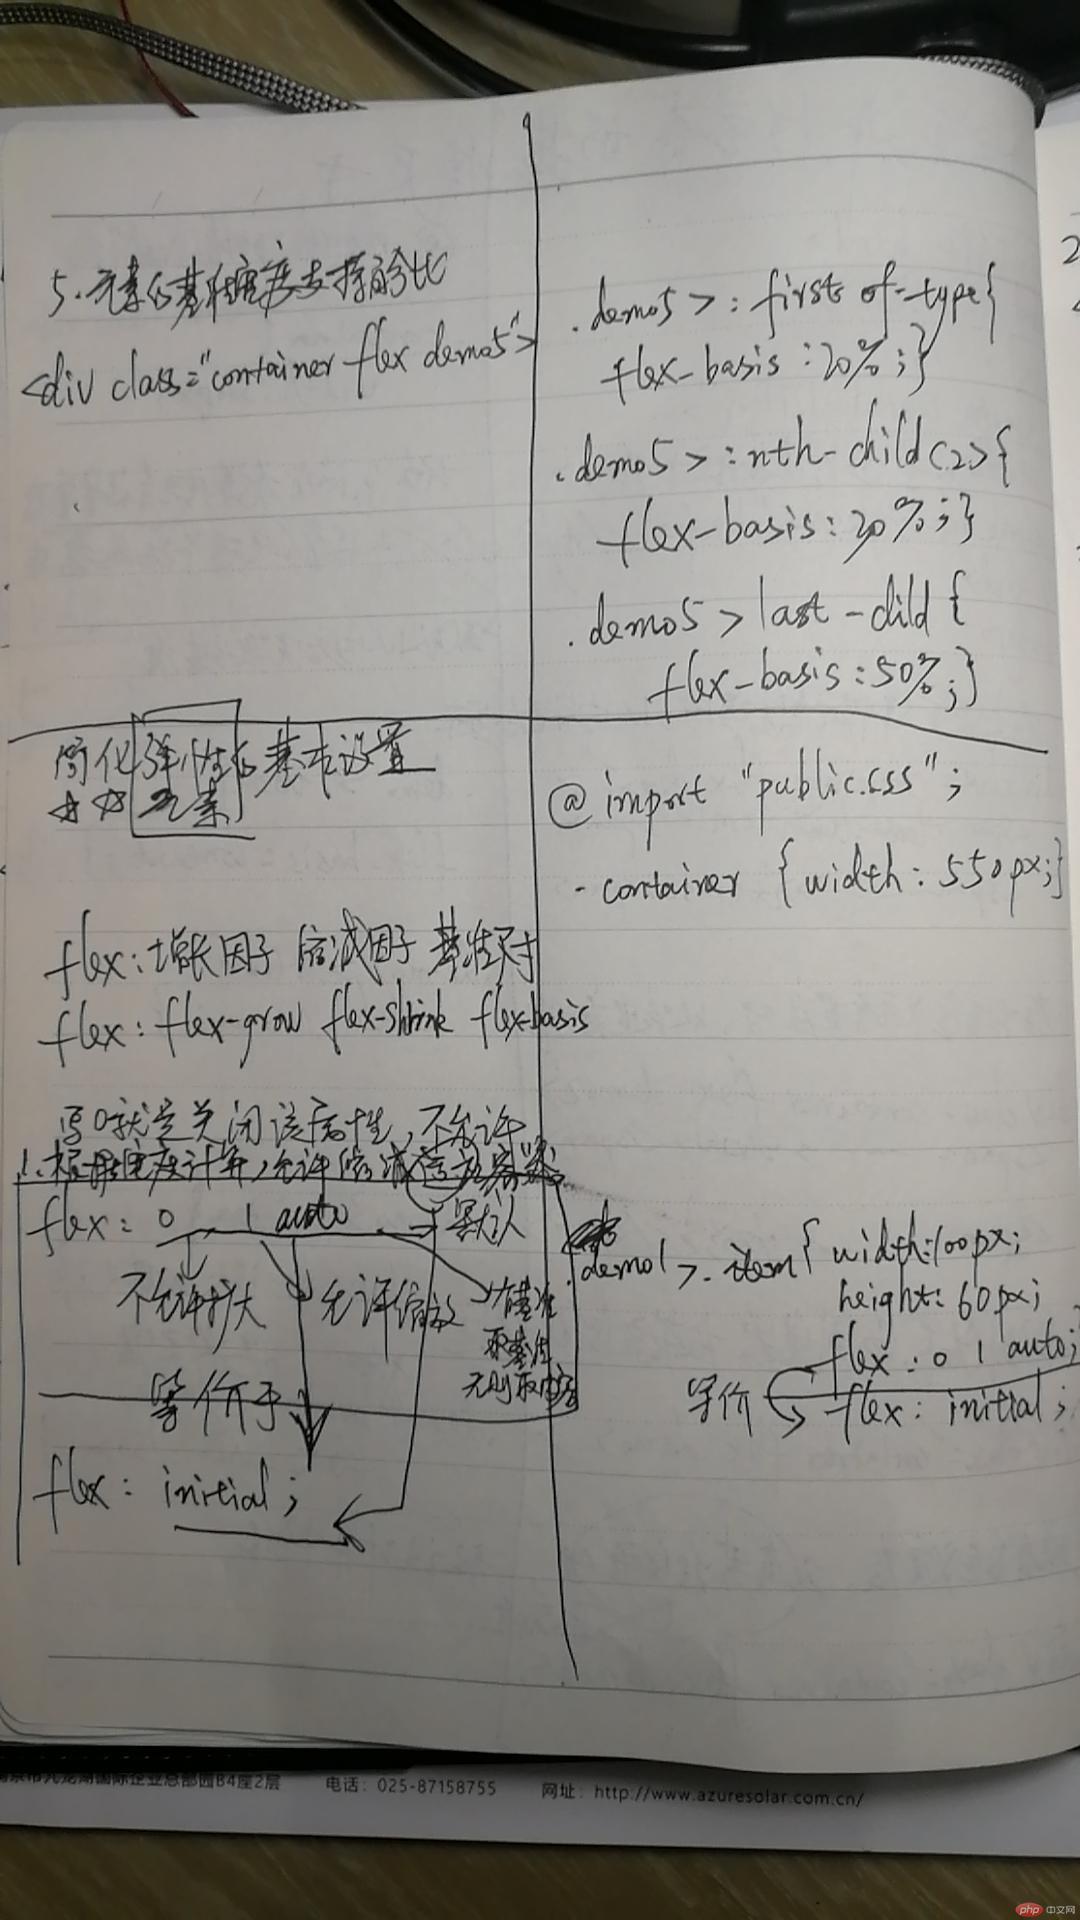 5.元素的基准宽度支持百分比
<div class="container flex demo5">
.demo5 >:first of-type{
flex-basis:20%;}
.demo5 >:nth-child(2){
flex-basis:30%;}
.demo5 > last-child {
flex-basis:50%;}
简化弹性元素的基本设置
@import "public.css";
.container {width:550px;}
flex:增长因子 缩减因子 基准尺寸
flex:flex-grow flex-shrink flex-basis
写0就是关闭该属性,不允许
1.根据宽度计算,允许缩减适应容器
flex: 0 1 auto 默认
不允许扩大
允许缩放
有基准
取基准
无则取
等价于
flex: initial;
.demo1 >.item{ width:100px;
height:60px;
flex:0 1 auto;
等价
flex:initial;
2
京市九龙湖国际企业总部园B4座2层 电话:025-87158755 网址:http://www.azuresolar.com.cn/
php 中文网